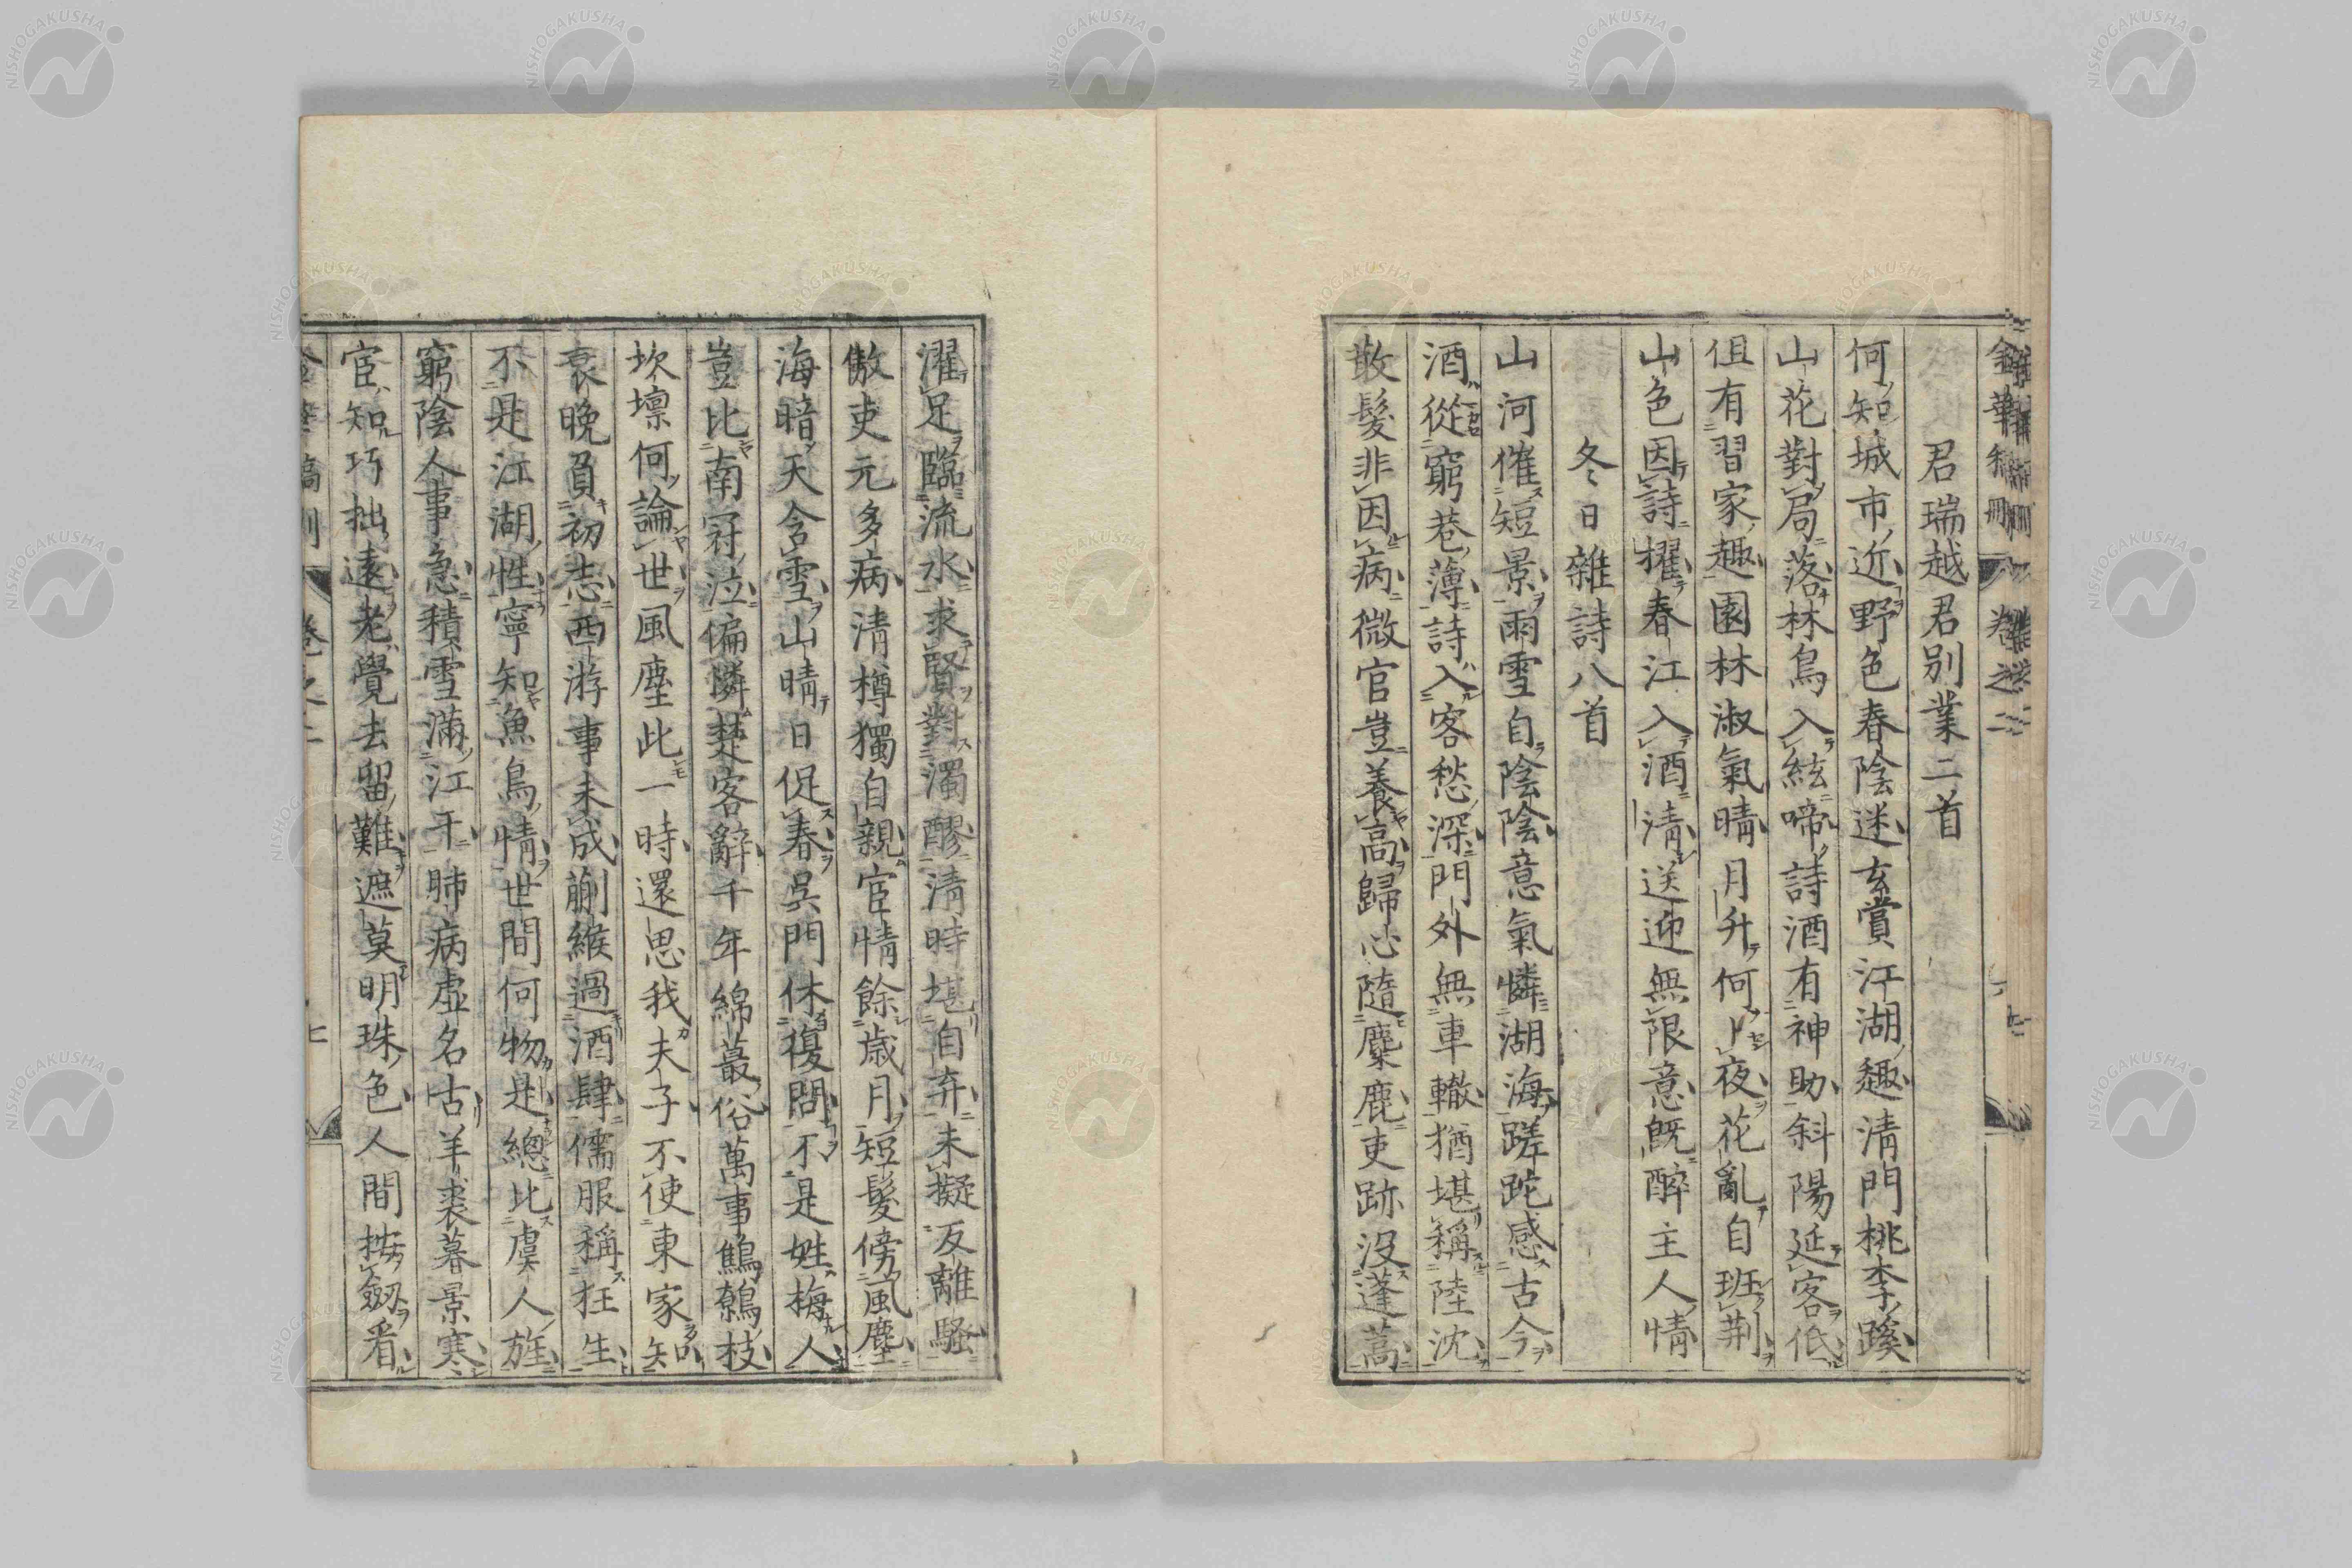 君瑞越君別業二首
何知城市近野色春陰迷玄賞江湖趣清門桃李蹊
山花對局落林鳥入絃啼詩酒有神助斜陽延客低
但有習家趣園林淑氣晴月升何卜夜花亂自班荆
山色因詩擢春江入酒清送迎無限意既醉主人情
冬日雜詩八首
山河催短景雨雪自陰陰意氣憐湖海蹉跎感古今
酒從窮巷薄詩入客愁深門外無車轍猶堪稱陸沈
散髮非因病微官豈養高歸心隨麋鹿吏跡没蓬蒿
濯足臨流水求賢對濁醪清時堪自弃未擬反離騷
傲吏元多病清樽獨自親宦情餘歳月短髮傍風塵
海暗天含雪山晴日促春呉門休復問不是姓梅人
豈比南冠泣偏憐楚客辭千年綿蕞俗萬事鷦鷯枝
坎壈何論世風塵此一時還思我夫子不使東家知
衰晩負初志西游事未成蒯緱過酒肆儒服稱狂生
不是江湖性寧知魚鳥情世間何物是總比虞人旌
窮陰人事急積雪滿江干肺病虚名古羊裘暮景寒
宦知巧拙遠老覺去留難遮莫明珠色人間按劔看
金華稿刪 卷之二
七
NISHOGAKUSHA